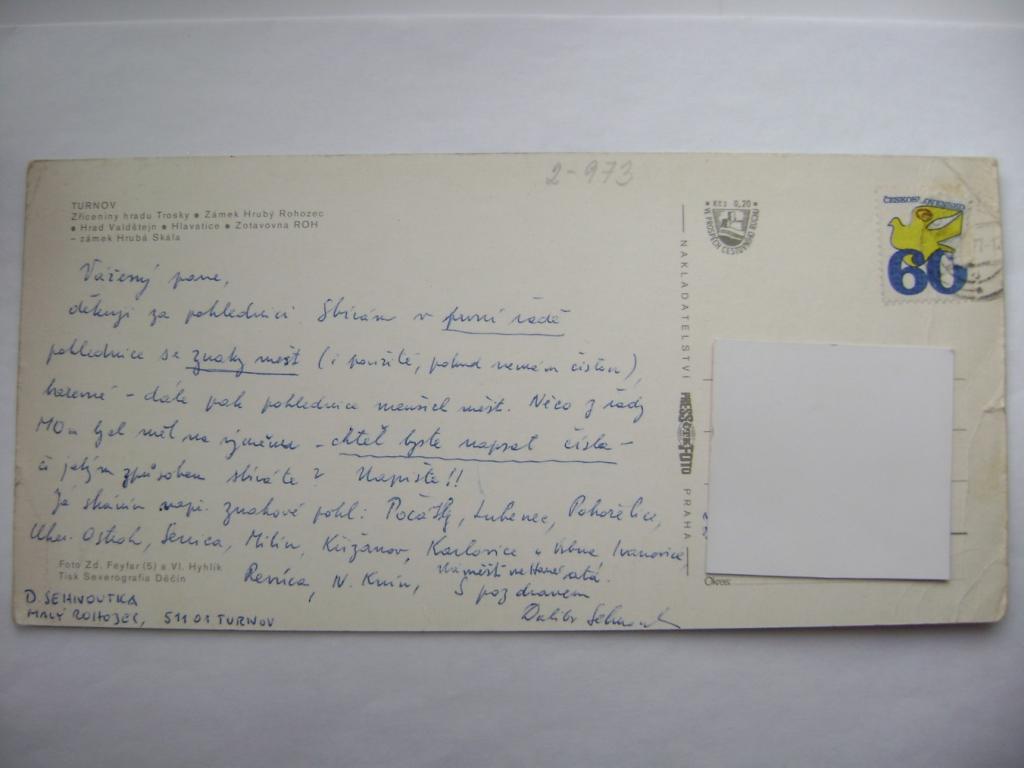 2-973
TURNOV
Zříceniny hradu Trosky ● Zámek Hrubý Rohozec
● Hrad Valdštejn ● Hlavatice ● Zotavovna ROH
– zámek Hrubá Skála
Vážený pane,
děkuji za pohlednici. Sbírám v první řadě
pohlednice se znaky měst (i použité, pokud nemám čistou),
barevné – dále pak pohlednice menších měst. Něco z řady
bych měl na výměnu – chtěl byste napsat čísla –
či jakým způsobem sbíráte? Napište!!
Já sháním např. znakové pohl: Počátky, Lubenec, Pohořelice,
Uher. Ostroh, Senica, Milín, Křižanov, Karlovice u Ivanovice
na Hané
Revúca, N. Knín, atd.
S pozdravem
Dalibor
Foto Zd. Feyfar (5) a Vl. Hyhlík
Tisk Severografia Děčín
D. SEHNOUTKA
MALÝ ROHOZEC, 511 01 TURNOV
KčS 0,20
VE PROSPĚCH CESTOVNÍHO RUCHU
NAKLADATELSTVÍ PRESSFOTO PRAHA
ČESKOSLOVENSKO
60
Okres